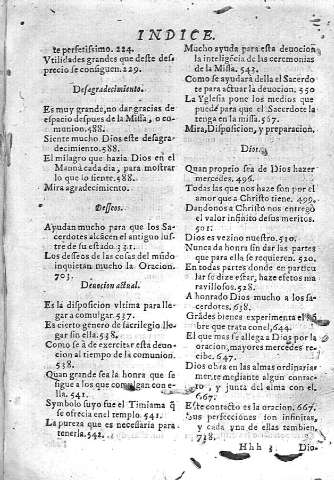 INDICE.
te perfetissimo. 224.
Vtilidades grandes que deste des
precio se consiguen. 229.
Desagradecimiento.
Es muy grande, no dar gracias de
espacio despues de la Missa, o co-
munion. 588.
Siente mucho Dios este desagra-
decimiento. 588.
El milagro que hazia Dios en el
Manná cada dia, para mostrar
lo que lo siente. 588.
Mira agradecimiento.
Desseos.
Ayudan mucho para que los Sa-
cerdotes alcācen el antiguo lus-
tre de su estado. 331.
Los desseos de las cosas del mūdo
inquietan mucho la Oracion.
703.
Deuocion actual.
Es la disposicion vltima para lle-
gar a comulgar. 537.
Es cierto genero de sacrilegio lle-
gar sin ella. 538.
Como se á de exercitar esta deuo-
cion al tiempo de la comunion.
538.
Quan grande sea la honra que se
sigue a los que comulgan con e-
lla. 541.
Symbolo suyo fue el Timiama q̄
se ofrecia en el templo. 541.
La pureza que es necesaria para
tenerla. 542.
Mucho ayuda para esta deuocion
la inteligēcia de las ceremonias
de la Missa. 543.
Como se ayudará della el Sacerdo
te para actuar la deuocion. 550
La Yglesia pone los medios que
puede para que el Sacerdote la
tenga en la missa. 567.
Mira, Disposicion, y preparacion.
Dios.
Quan proprio sea de Dios hazer
mercedes. 496.
Todas las que nos haze son por el
amor que a Christo tiene. 499.
Dandonos a Christo nos entregó
el valor infinito de sus meritos.
501.
Dios es vezino nuestro. 510.
Nunca da honra sin dar las partes
que para ella se requieren. 520.
En todas partes donde en particu
lar se dize estar, haze efectos ma
ravillosos. 528.
A honrado Dios mucho a los sa-
cerdotes. 638.
Grādes bienes experimenta el hō
bre que trata con el, 644.
El que mas se allega a Dios por la
oracion, mayores mercedes re-
cibe. 647.
Dios obra en las almas ordinariar
mente mediante algun contac-
to, y junta del alma con el.
667.
Este contacto es la oracion. 667.
Sus perfecciones son infinitas,
y cada vna de ellas tambien.
738.
Hhh 3 Dio-